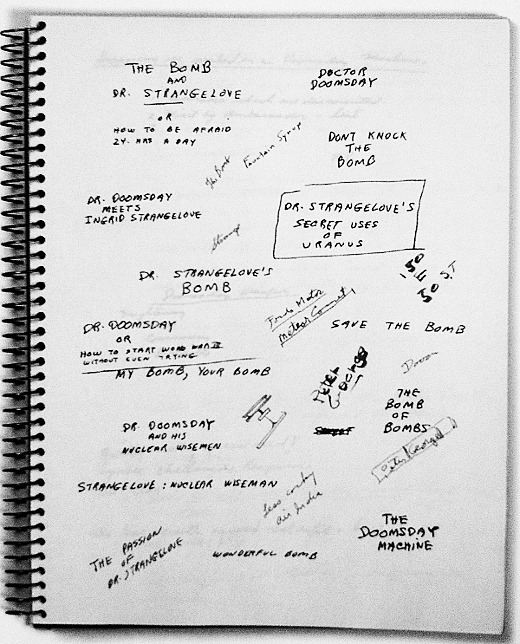 THE BOMB
AND
DR. STRANGELOVE
OR
HOW TO BE AFRAID
24 HRS A DAY
DOCTOR
DOOMSDAY
DONT KNOCK
THE
BOMB
Fountain Syrup
DR. DOOMSDAY
MEETS
INGRID STRANGELOVE
DR. STRANGELOVE'S
SECRET USES
OF
URANUS
Strange
DR. STRANGELOVE'S
BOMB
DR. DOOMSDAY
OR
HOW TO START WORLD WAR III
WITHOUT EVEN TRYING
MY BOMB, YOUR BOMB
SAVE THE BOMB
PETER
GEORGE
THE
BOMB
OF
BOMBS
DR. DOOMSDAY
AND HIS
NUCLEAR WISEMEN
Peter George
STRANGELOVE: NUCLEAR WISEMAN
air India
THE PASSION
OF
DR. STRANGELOVE
WONDERFUL BOMB
THE
DOOMSDAY
MACHINE